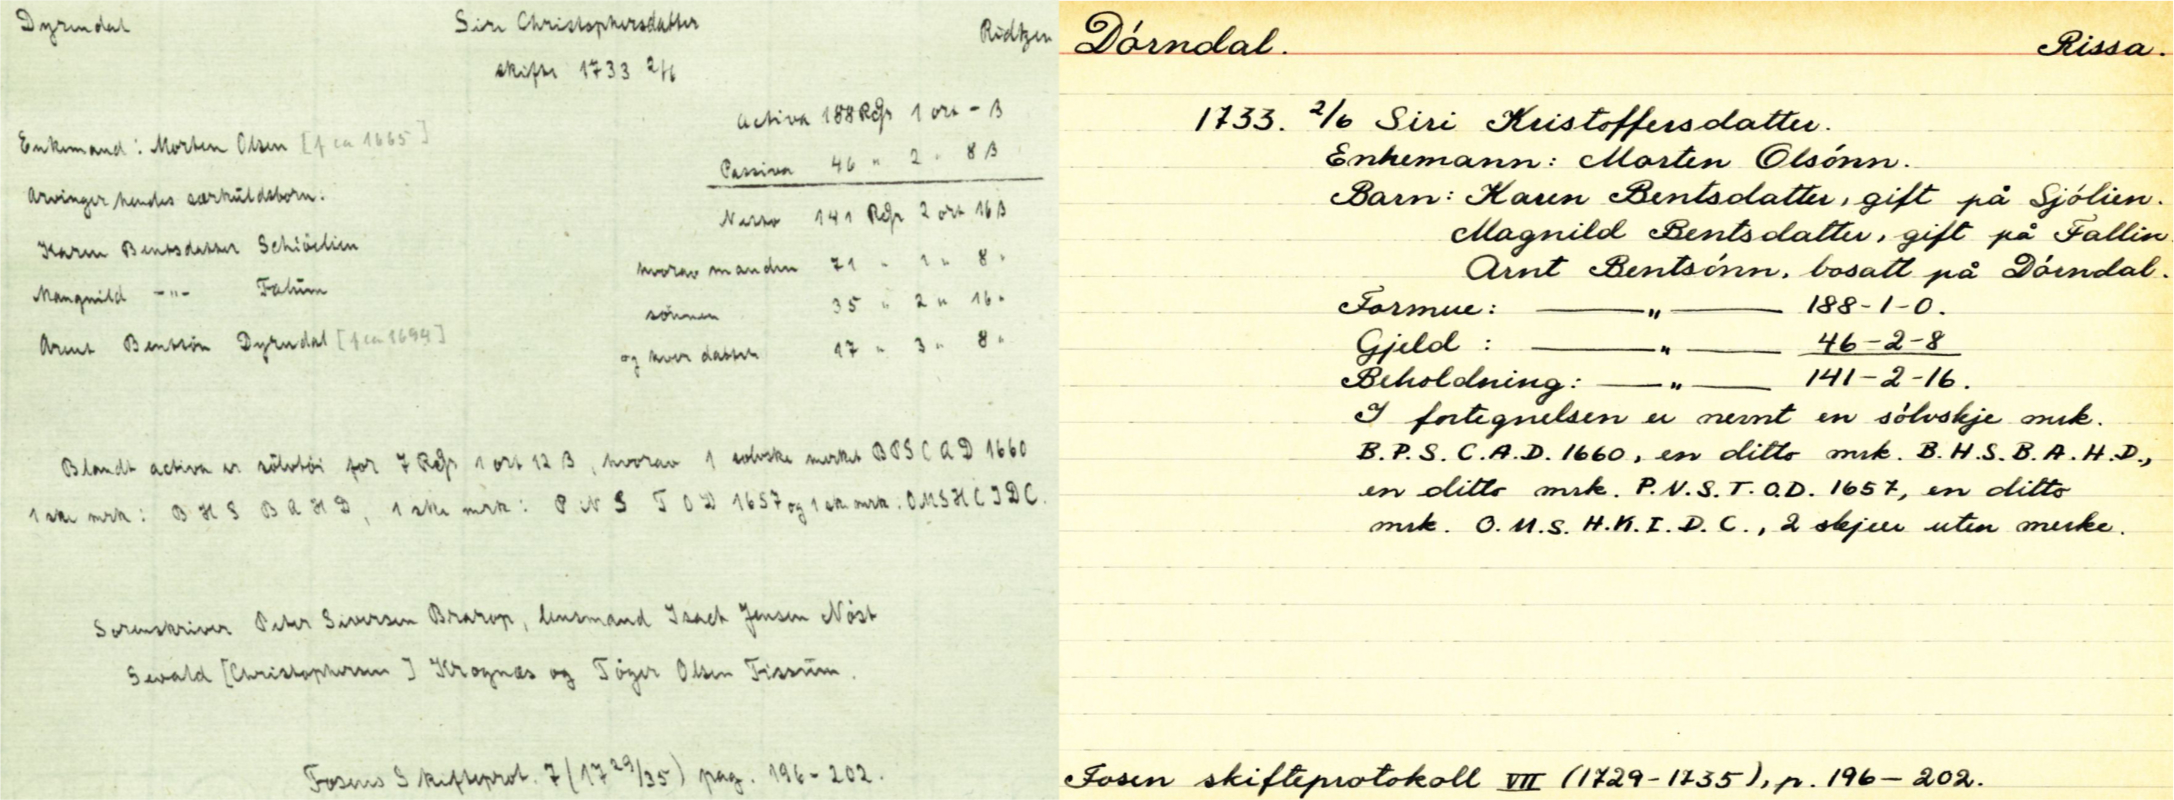 Dyrndal Siri Christophersdatter Ridtzen
skifte 1733 2/6
Activa 188 Rdlr 1 ort - ß
Enkemand: Morten Olsen [f ca 1665]
Passiva 46 " 2 " 8 ß
Arvinger hendes særkuldsbørn:
Netto 141 Rdlr 2 ort 16 ß
Karen Bentsdatter Schiöelien
hvorav manden 71 " 1 " 8 "
Mangnild -"- Falün
sönnen 35 " 2 " 16 "
Arent Bentsön Dyrndal [f ca 1694]
og hver datter 17 " 3 " 8 "
Blandt activa er sölvtöi for 7 Rdlr 1 ort 12 ß, hvorav 1 solvske merket BPS CAD 1660
1 ske mrk: BHS BAHD, 1 ske mrk: PNS TOD 1657 og 1 ske mrk: OMSHCIDC.
Sorenskriver Peter Siversen Brarop, lensmand Isach Jensen Nöst
Sevald [Christophersen] Krognæs og Töger Olsen Fissüm.
Fosens Skifteprot. 7 (1729/35) pag. 196-202.
Dórndal. Rissa.
1733. 2/6 Siri Kristoffersdatter.
Enkemann: Morten Olsónn.
Barn: Karen Bentsdatter, gift på Sjólien.
Magnild Bentsdatter, gift på Fallin.
Arnt Bentsónn, bosatt på Dórndal.
Formue: —"— 188-1-0.
Gjeld : —"— 46-2-8
Beholdning: —"— 141-2-16.
I fortegnelsen er nevnt en sólvskje mrk.
B.P.S. C.A.D. 1660, en ditto mrk. B.H.S.B.A.H.D.,
en ditto mrk. P.N.S.T.O.D. 1657, en ditto
mrk. O.M.S. H.K.I.D.C., 2 skjeer uten merke.
Fosen skifteprotokoll VII (1729-1735), p. 196-202.